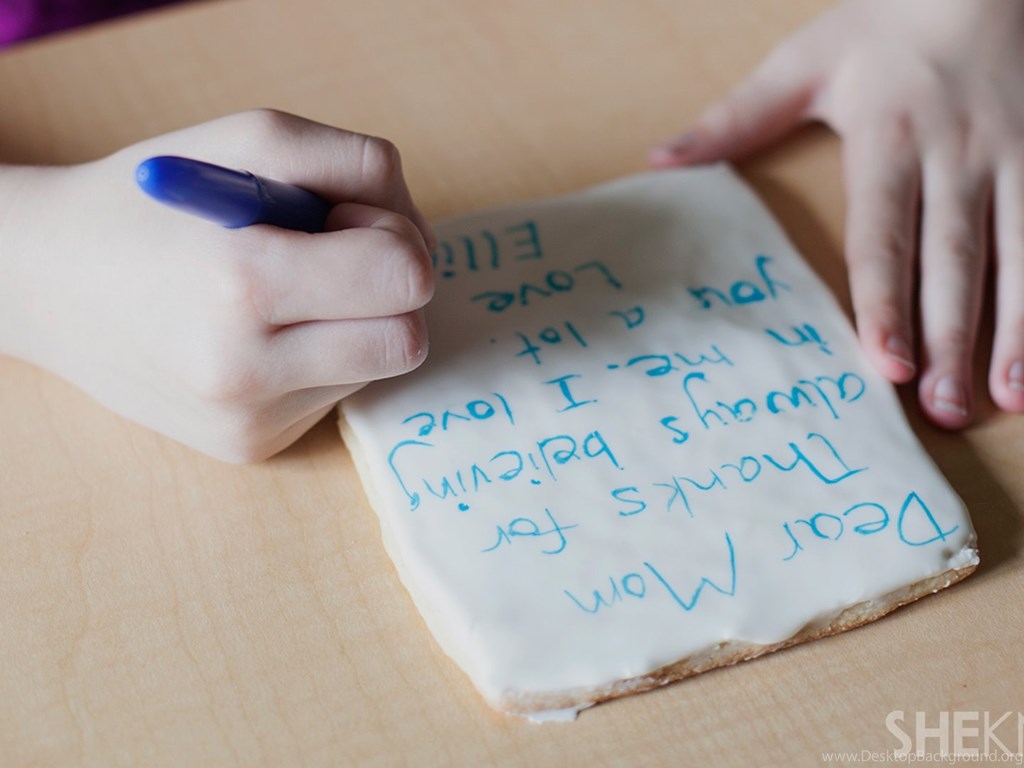 Dear Mom
Thanks for
always believing
in me. I love
you a lot.
Love
Elli
SHEK
www.DesktopBackground.org